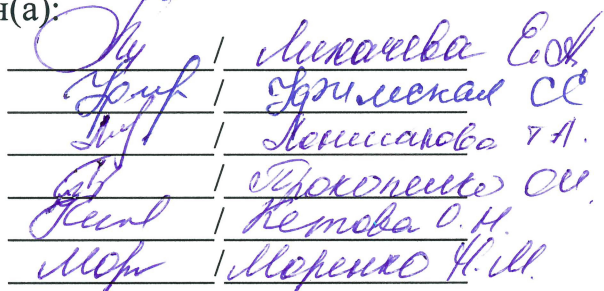 н(а):
/ Лихачева Е.А
/ Уфимская СС
/ Лоншакова Т А.
/ Прокопенко О.И.
/ Кетова О. Н.
/ Моренко Н. М.